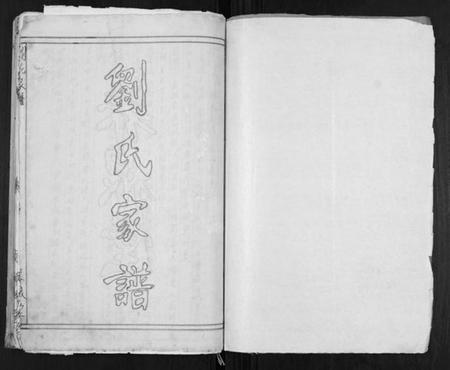 劉氏家譜